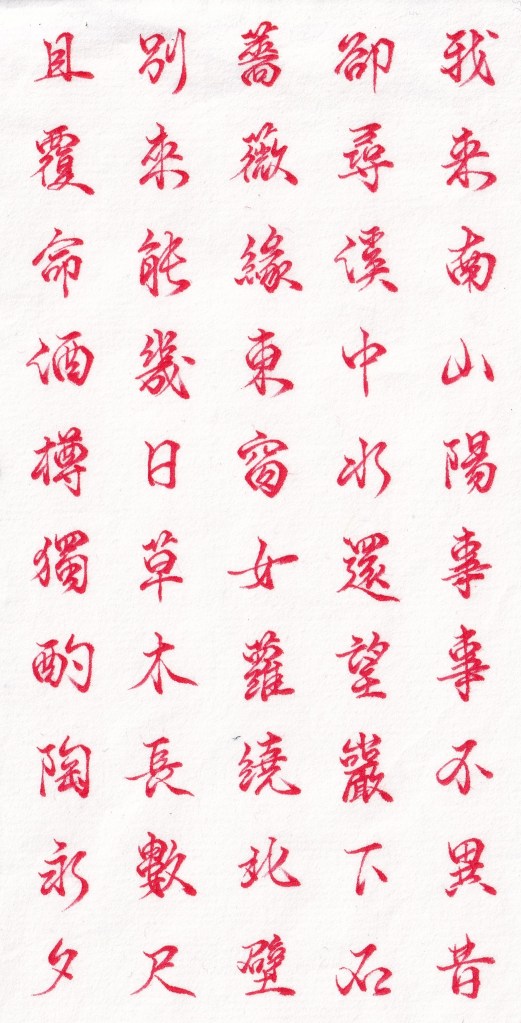 我来南山陽事事不異昔
卻尋溪中水還望巖下石
薔薇緣東窗女蘿繞北壁
別來能幾日草木長數尺
且覆命酒樽獨酌陶永夕